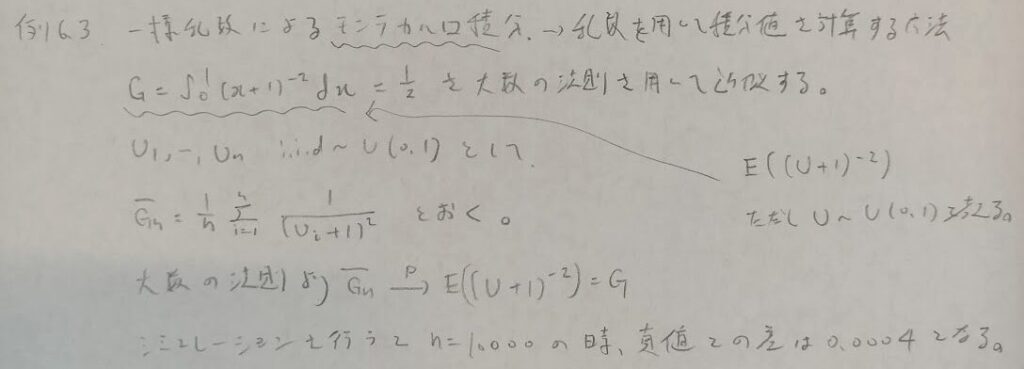 例 6.3 一様乱数によるモンテカルロ積分. → 乱数を用いて積分値を計算する方法
G = ∫₀¹ (x+1)⁻² dx = 1/2 を大数の法則を用いて近似する。
U₁, ‐, Uₙ i.i.d ~ U(0,1) として.
E((U+1)⁻²)
ただし U ~ U(0,1) を考える。
Ḡₙ = 1/n Σ_{i=1}^{n} 1/(Uᵢ+1)² とおく。
大数の法則より Ḡₙ →ᴾ E((U+1)⁻²) = G
シミュレーションを行うと n=10000 の時、真値との差は 0.0004 となる。